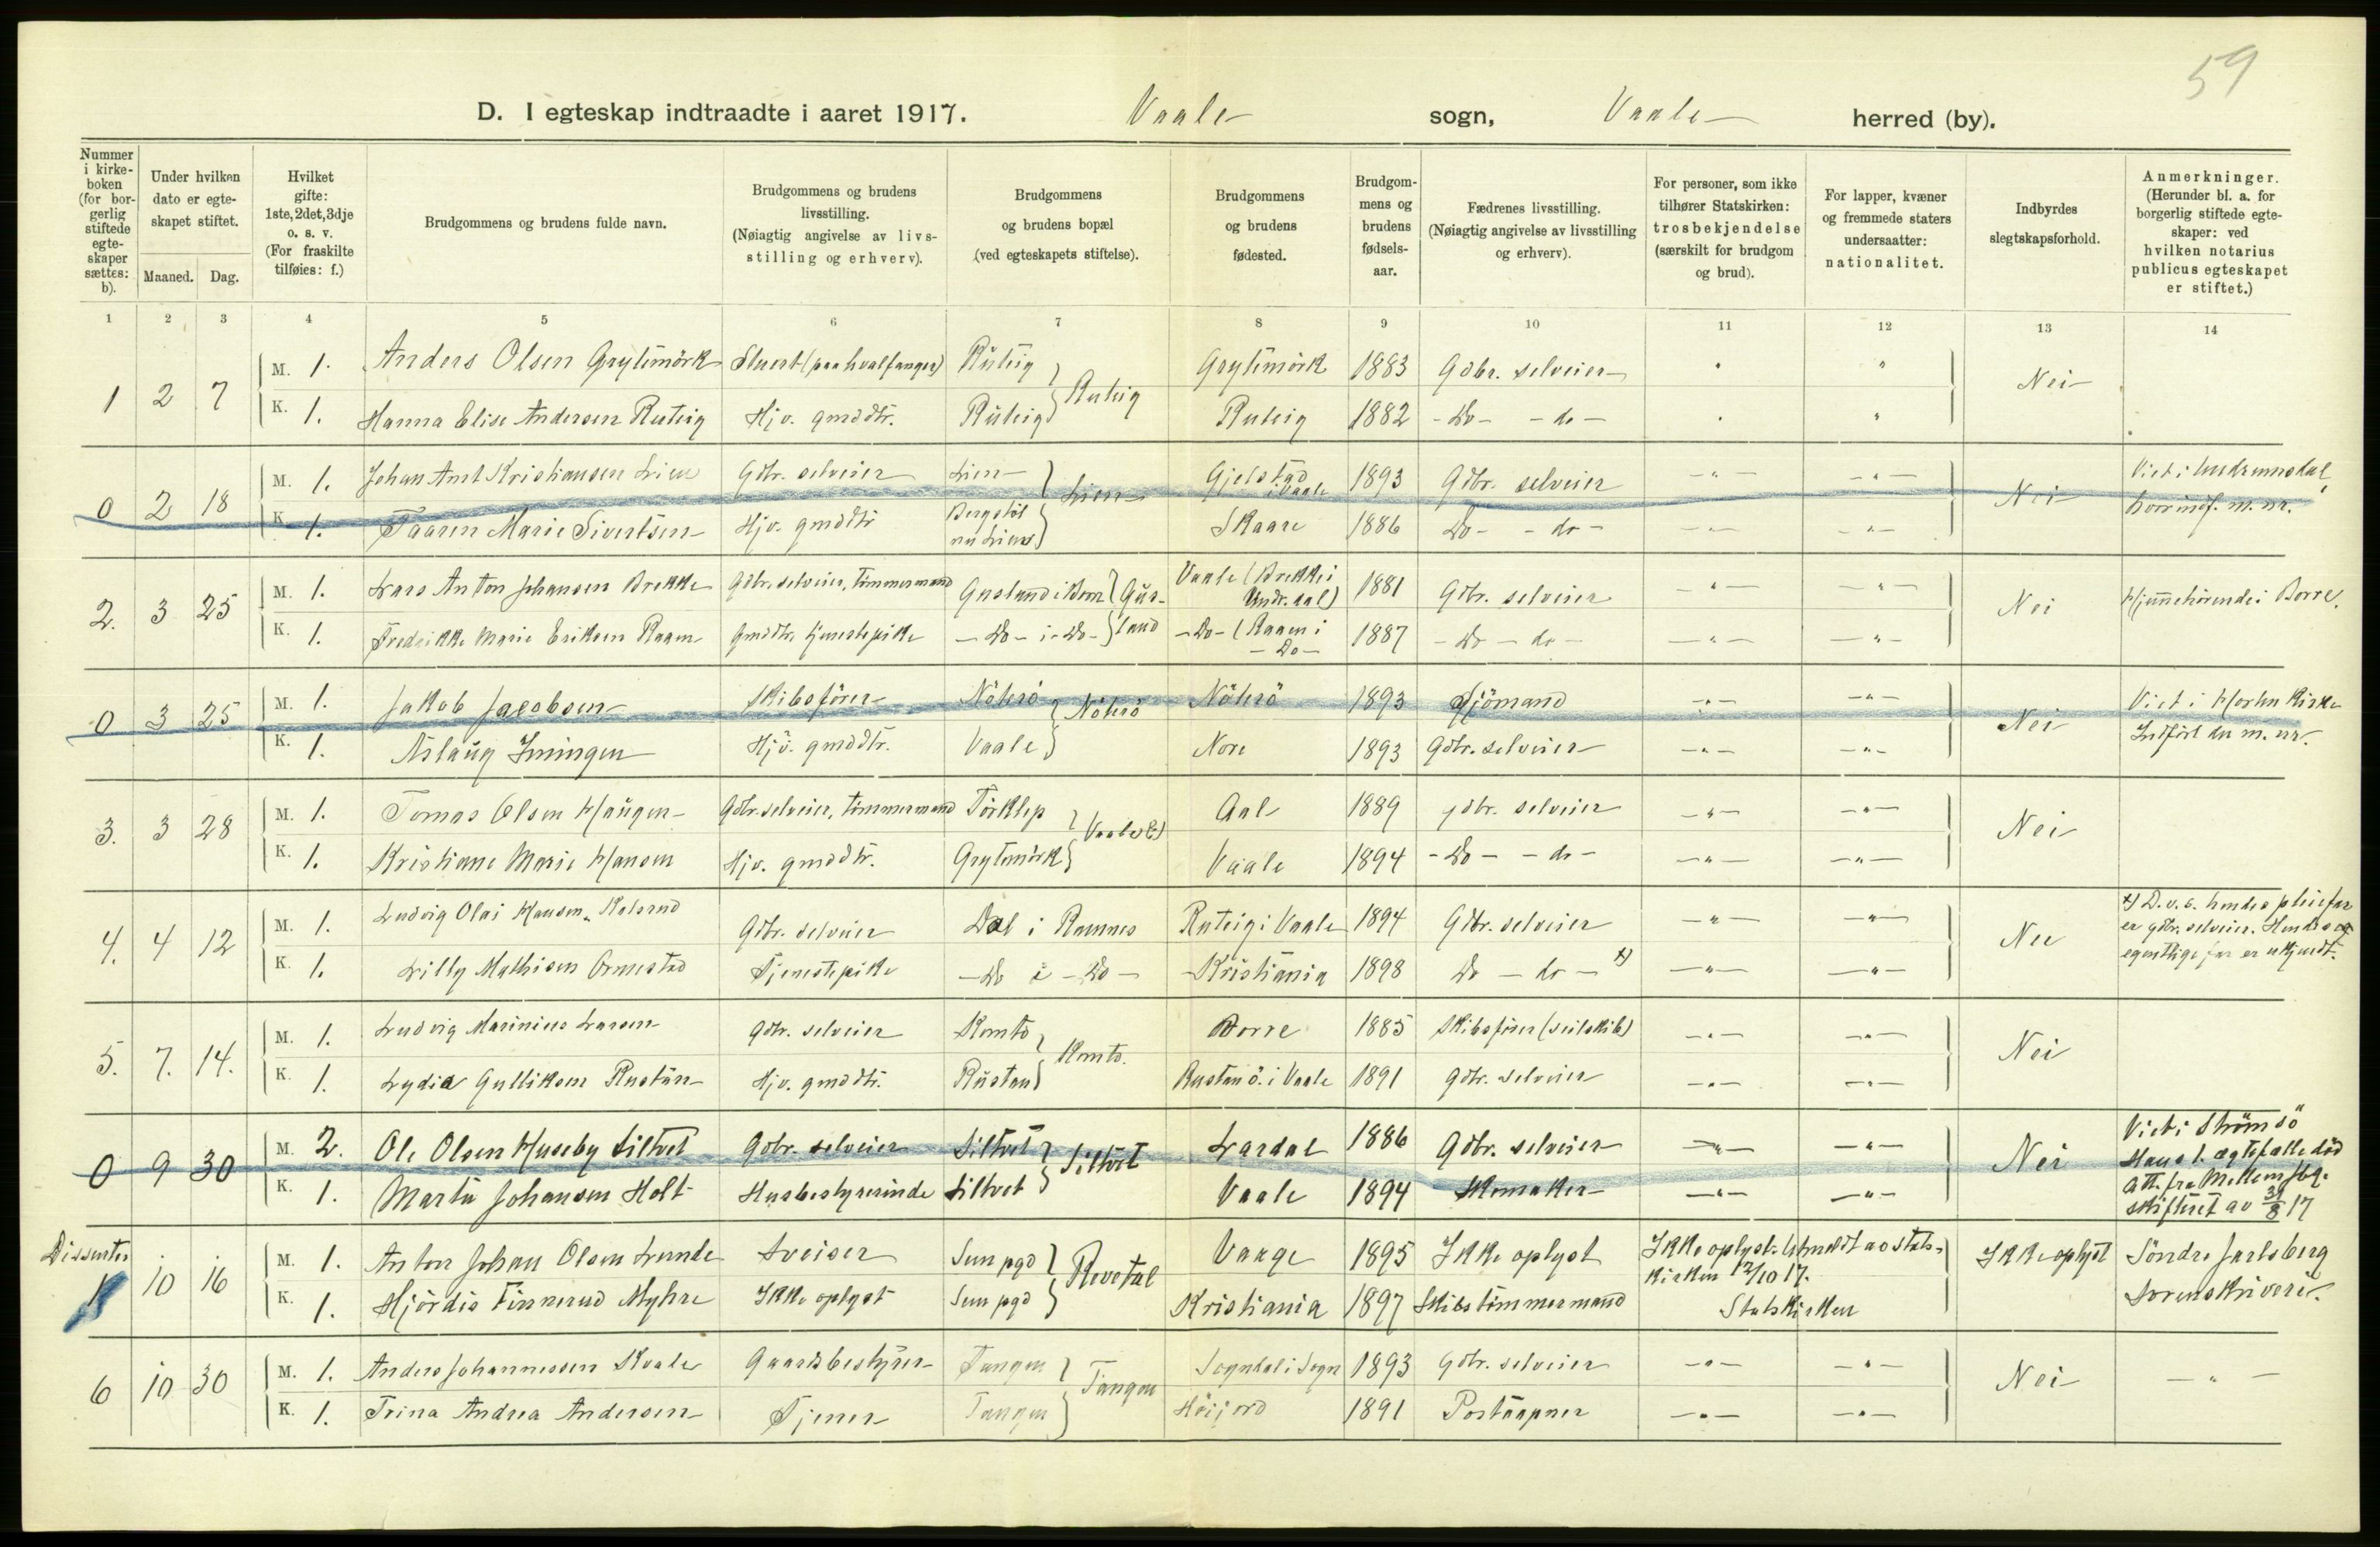 59
D. I egteskap indtraadte i aaret 1917. Vaale sogn, Vaale herred (by).
Nummer i kirkeboken (for borgerlig stiftede egteskaper sættes: b).
Under hvilken dato er egteskapet stiftet.
Maaned. Dag.
Hvilket gifte: 1ste, 2det, 3dje o. s. v. (For fraskilte tilføies: f.)
Brudgommens og brudens fulde navn.
Brudgommens og brudens livsstilling. (Nøiagtig angivelse av livsstilling og erhverv).
Brudgommens og brudens bopæl (ved egteskapets stiftelse).
Brudgommens og brudens fødested.
Brudgommens og brudens fødselsaar.
Fædrenes livsstilling. (Nøiagtig angivelse av livsstilling og erhverv).
For personer, som ikke tilhører Statskirken: trosbekjendelse (særskilt for brudgom og brud).
For lapper, kvæner og fremmede staters undersaatter: nationalitet.
Indbyrdes slegtskapsforhold.
Anmerkninger. (Herunder bl. a. for borgerlig stiftede egteskaper: ved hvilken notarius publicus egteskapet er stiftet.)
1 2 3 4 5 6 7 8 9 10 11 12 13 14
1 2 7 M. 1. Anders Olsen Grytimörk Stuert (paa hvalfanger) Ruteig } Ruteig Grytimörk 1883 Gdbr. selveier " " Nei
K. 1. Hanna Elise Andersen Ruteig Hjv. gmddtr. Ruteig Ruteig 1882 - Do - - do - " "
0 2 18 M. 1. Johan Amt Kristiansen Lien Gdbr. selveier Lien } Lien Gjelstad i Vaale 1893 Gdbr. selveier - " - - " - Nei Viet i Undrumsdal
K. 1. Taaren Marie Sivertsen Hjv. gmddtr Bergstöl nu Lien Skaare 1886 Do - - do - - " - - " - Borr indf. m. nr.
2. 3 25 M. 1. Lars Anton Johansen Brekke Gdbr. selveier, tömmermand Gusland i Borre } Gusland Vaale (Brekke i Undr.dal) 1881 Gdbr. selveier - " - - " - Nei Hjemehörende i Borre.
K. 1. Fredrikke Marie Eriksen Raaen gmddtr. tjenestepike - Do - i - Do - - Do - (Raaen i - Do - 1887 - Do - do - - " - - " -
0 3 25 M. 1. Jakob Jacobsen Skibsförer Nöterö } Nöterö Nöterö 1893 Sjömand - " - - " - Nei Viet i Horten Kirke
K. 1. Aslaug Imingen Hjv. gmddtr. Vaale Nore 1893 Gdbr. selveier - " - - " - Indfört der m. nr.
3. 3 28 M. 1. Tomas Olsen Haugen Gdbr. selveier, tömmermand Törklep } Vaale Aal 1889 gdbr. selveier - " - - " - Nei
K. 1. Kristiane Marie Hansen Hjv. gmddtr. Grytimörk Vaale 1894 - Do - - do - - " - - " -
4. 4 12 M. 1. Ludvig Olai Hansen Kalsrud Gdbr. selveier Dal i Ramnes Ruteig i Vaale 1894 Gdbr. selveier - " - - " - Nei x) D. v. s. hendes pleiefar er gdbr. selveier. Hendes
K. 1. Lilly Mathisen Ormestad Tjenestepike - Do i - Do - Kristiania 1898 Do - do - x) - " - - " - egentlige far er ukjendt.
5. 7. 14. M. 1. Ludvig Marinius Larsen Gdbr. selveier Komtö } Komtö. Borre 1885 Skibsförer (seilskib) - " - - " - Nei
K. 1. Lydia Gulliksen Rustan Hjv. gmddtr. Rustan Rustan ö. i Vaale 1891 Gdbr. selveier - " - - " -
0 9 30 M. 2. Ole Olsen Huseby Siltvet Gdbr. selveier Siltvet } Siltvet Lardal 1886 Gdbr. selveier - " - - " - Nei Viet i Strömsö Hans 1. ægtefælle död
K. 1. Marta Johansen Holt Husbestyrerinde Siltvet Vaale 1894 Skomaker - " - - " - Att. fra Mellem Jbg. skifteret av 31/8 17
Dissenter 1 10 16 M. 1. Anton Johan Olsen Lunde Sveiser Sem pgd } Revetal Vaage 1895 Ikke oplyst Ikke oplyst. Utmeldt av statskirken 12/10 17. Ikke oplyst Söndre Jarlsberg
K. 1. Hjördis Finnerud Myhre Ikke oplyst Sem pgd Kristiania 1897 Skibstömmermand Statskirken Sorenskriveri.
6 10 30 M. 1. Anders Johannessen Kvale Gaardsbestyrer Tangen } Tangen Sogndal i Sogn 1893 Gdbr. selveier - " - - " - Nei - " -
K. 1. Trina Andrea Andersen Tjener Tangen Höijord 1891 Postaapner - " - - " -